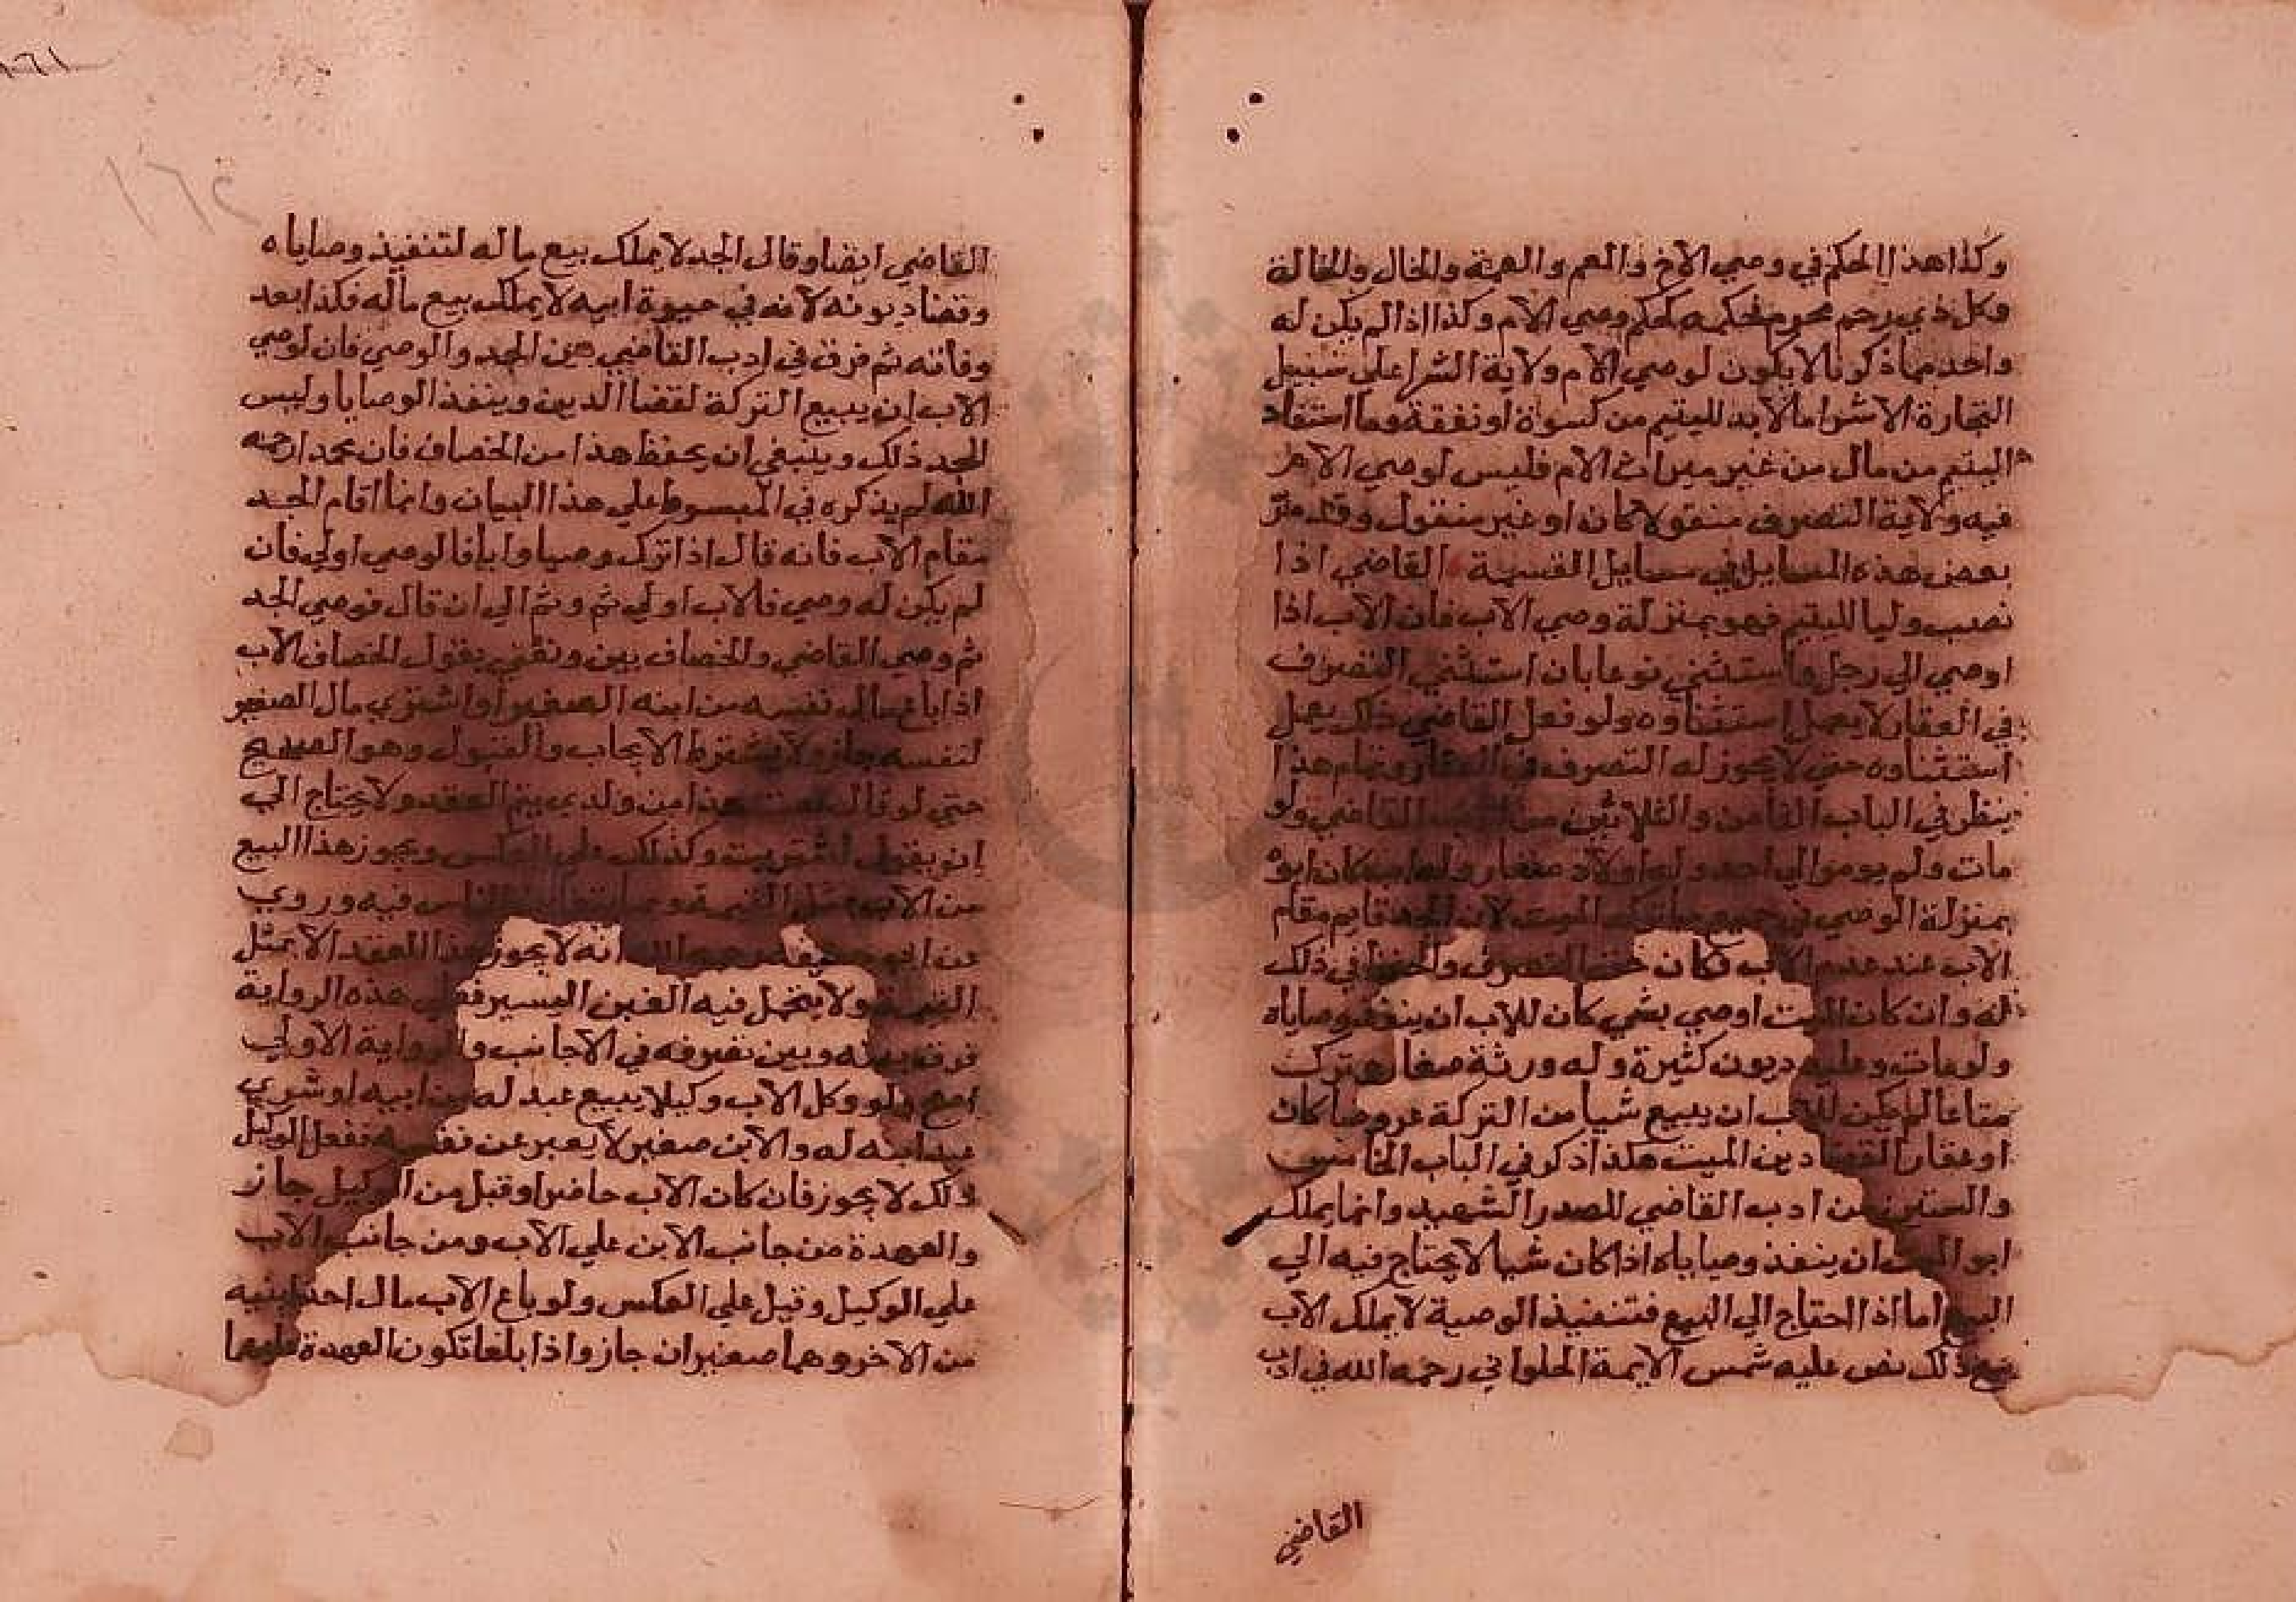 وكذا هذا الحكم في وصي الاخ والعم والعمة والخال والخالة
وكل ذي رحم محرم فحكمه كحكم وصي الام وكذا اذا لم يكن له
واحد مما ذكرنا لا يكون لوصي الام ولاية الشرا علي سبيل
التجارة الا شرا ما لابد لليتيم من كسوة او نفقة وما استفاد
اليتيم من مال من غير ميراث الام فليس لوصي الام
فيه ولاية التصرف منقولا كان او غير منقول وقد مر
بعض هذه المسايل في مسايل القسمة القاضي اذا
نصب وليا لليتيم فهو بمنزلة وصي الاب فان الاب اذا
اوصي الي رجل واستثني نوعا بان استثني التصرف
في العقار لا يعمل استثناوه ولو فعل القاضي ذلك يعمل
استثناوه حتي لا يجوز له التصرف في العقار وتمام هذا
ينظر في الباب الثامن والثلاثين من القاضي ولو
مات ولم يوص الي احد وله اولاد صغار وله اب كان ابوه
بمنزلة الوصي في جميع الميت لان الجد قايم مقام
الاب عند عدم الاب فكان التصرف والحفظ في ذلك
له وان كان الميت اوصي بشي كان للاب ان ينفذ وصاياه
ولو مات وعليه ديون كثيرة وله ورثة صغار وترك
متاعا لم يكن للاب ان يبيع شيا من التركة عروضا كان
او عقارا لقضا دين الميت هكذا ذكر في الباب الخامس
والستين من ادب القاضي للصدر الشهيد وانما يملك
ابو الميت ان ينفذ وصاياه اذا كان شيا لا يحتاج فيه الي
البيع اما اذا احتاج الي البيع فتنفيذ الوصية لا يملك الاب
بيع ذلك نص عليه شمس الايمة الحلواني رحمه الله في ادب
القاضي
١٦٤
القاضي ايضا وقال الجد لا يملك بيع ماله لتنفيذ وصاياه
وقضا ديونه لانه في حيوة ابيه لا يملك بيع ماله فكذا بعد
وفاته ثم فرق في ادب القاضي بين الجد والوصي فان لوصي
الاب ان يبيع التركة لقضا الدين وينفذ الوصايا وليس
للجد ذلك وينبغي ان يحفظ هذا من الخصاف فان محمدا رحمه
الله لم يذكره في المبسوط علي هذا البيان وانما اقام الجد
مقام الاب فانه قال اذا ترك وصيا وابا فالوصي اولي فان
لم يكن له وصي فالاب اولي ثم وثم الي ان قال فوصي الجد
ثم وصي القاضي والخصاف بين ونفتي بقول الخصاف الاب
اذا باع مال نفسه من ابنه الصغير او اشتري مال الصغير
لنفسه جاز ولا يشترط الايجاب والقبول وهو الصحيح
حتي لو قال بعت هذا من ولدي يتم العقد ولا يحتاج الي
ان يقول اشتريت وكذلك علي العكس ويجوز هذا البيع
من الاب بمثل القيمة وبما يتغابن الناس فيه وروي
عن ابي انه لا يجوز هذا العقد الا بمثل
القيمة ولا يتحمل فيه الغبن اليسير ففي هذه الرواية
فرق بينه وبين تصرفه في الاجانب والرواية الاولي
اصح ولو وكل الاب وكيلا يبيع عبد له من ابيه او شري
عبد ابنه له والابن صغير لا يعبر عن نفسه ففعل الوكيل
ذلك لا يجوز فان كان الاب حاضرا وقبل من الوكيل جاز
والعهدة من جانب الابن علي الاب ومن جانب الاب
علي الوكيل وقيل علي العكس ولو باع الاب مال احد ابنيه
من الاخر وهما صغيران جاز واذا بلغا تكون العهدة عليهما